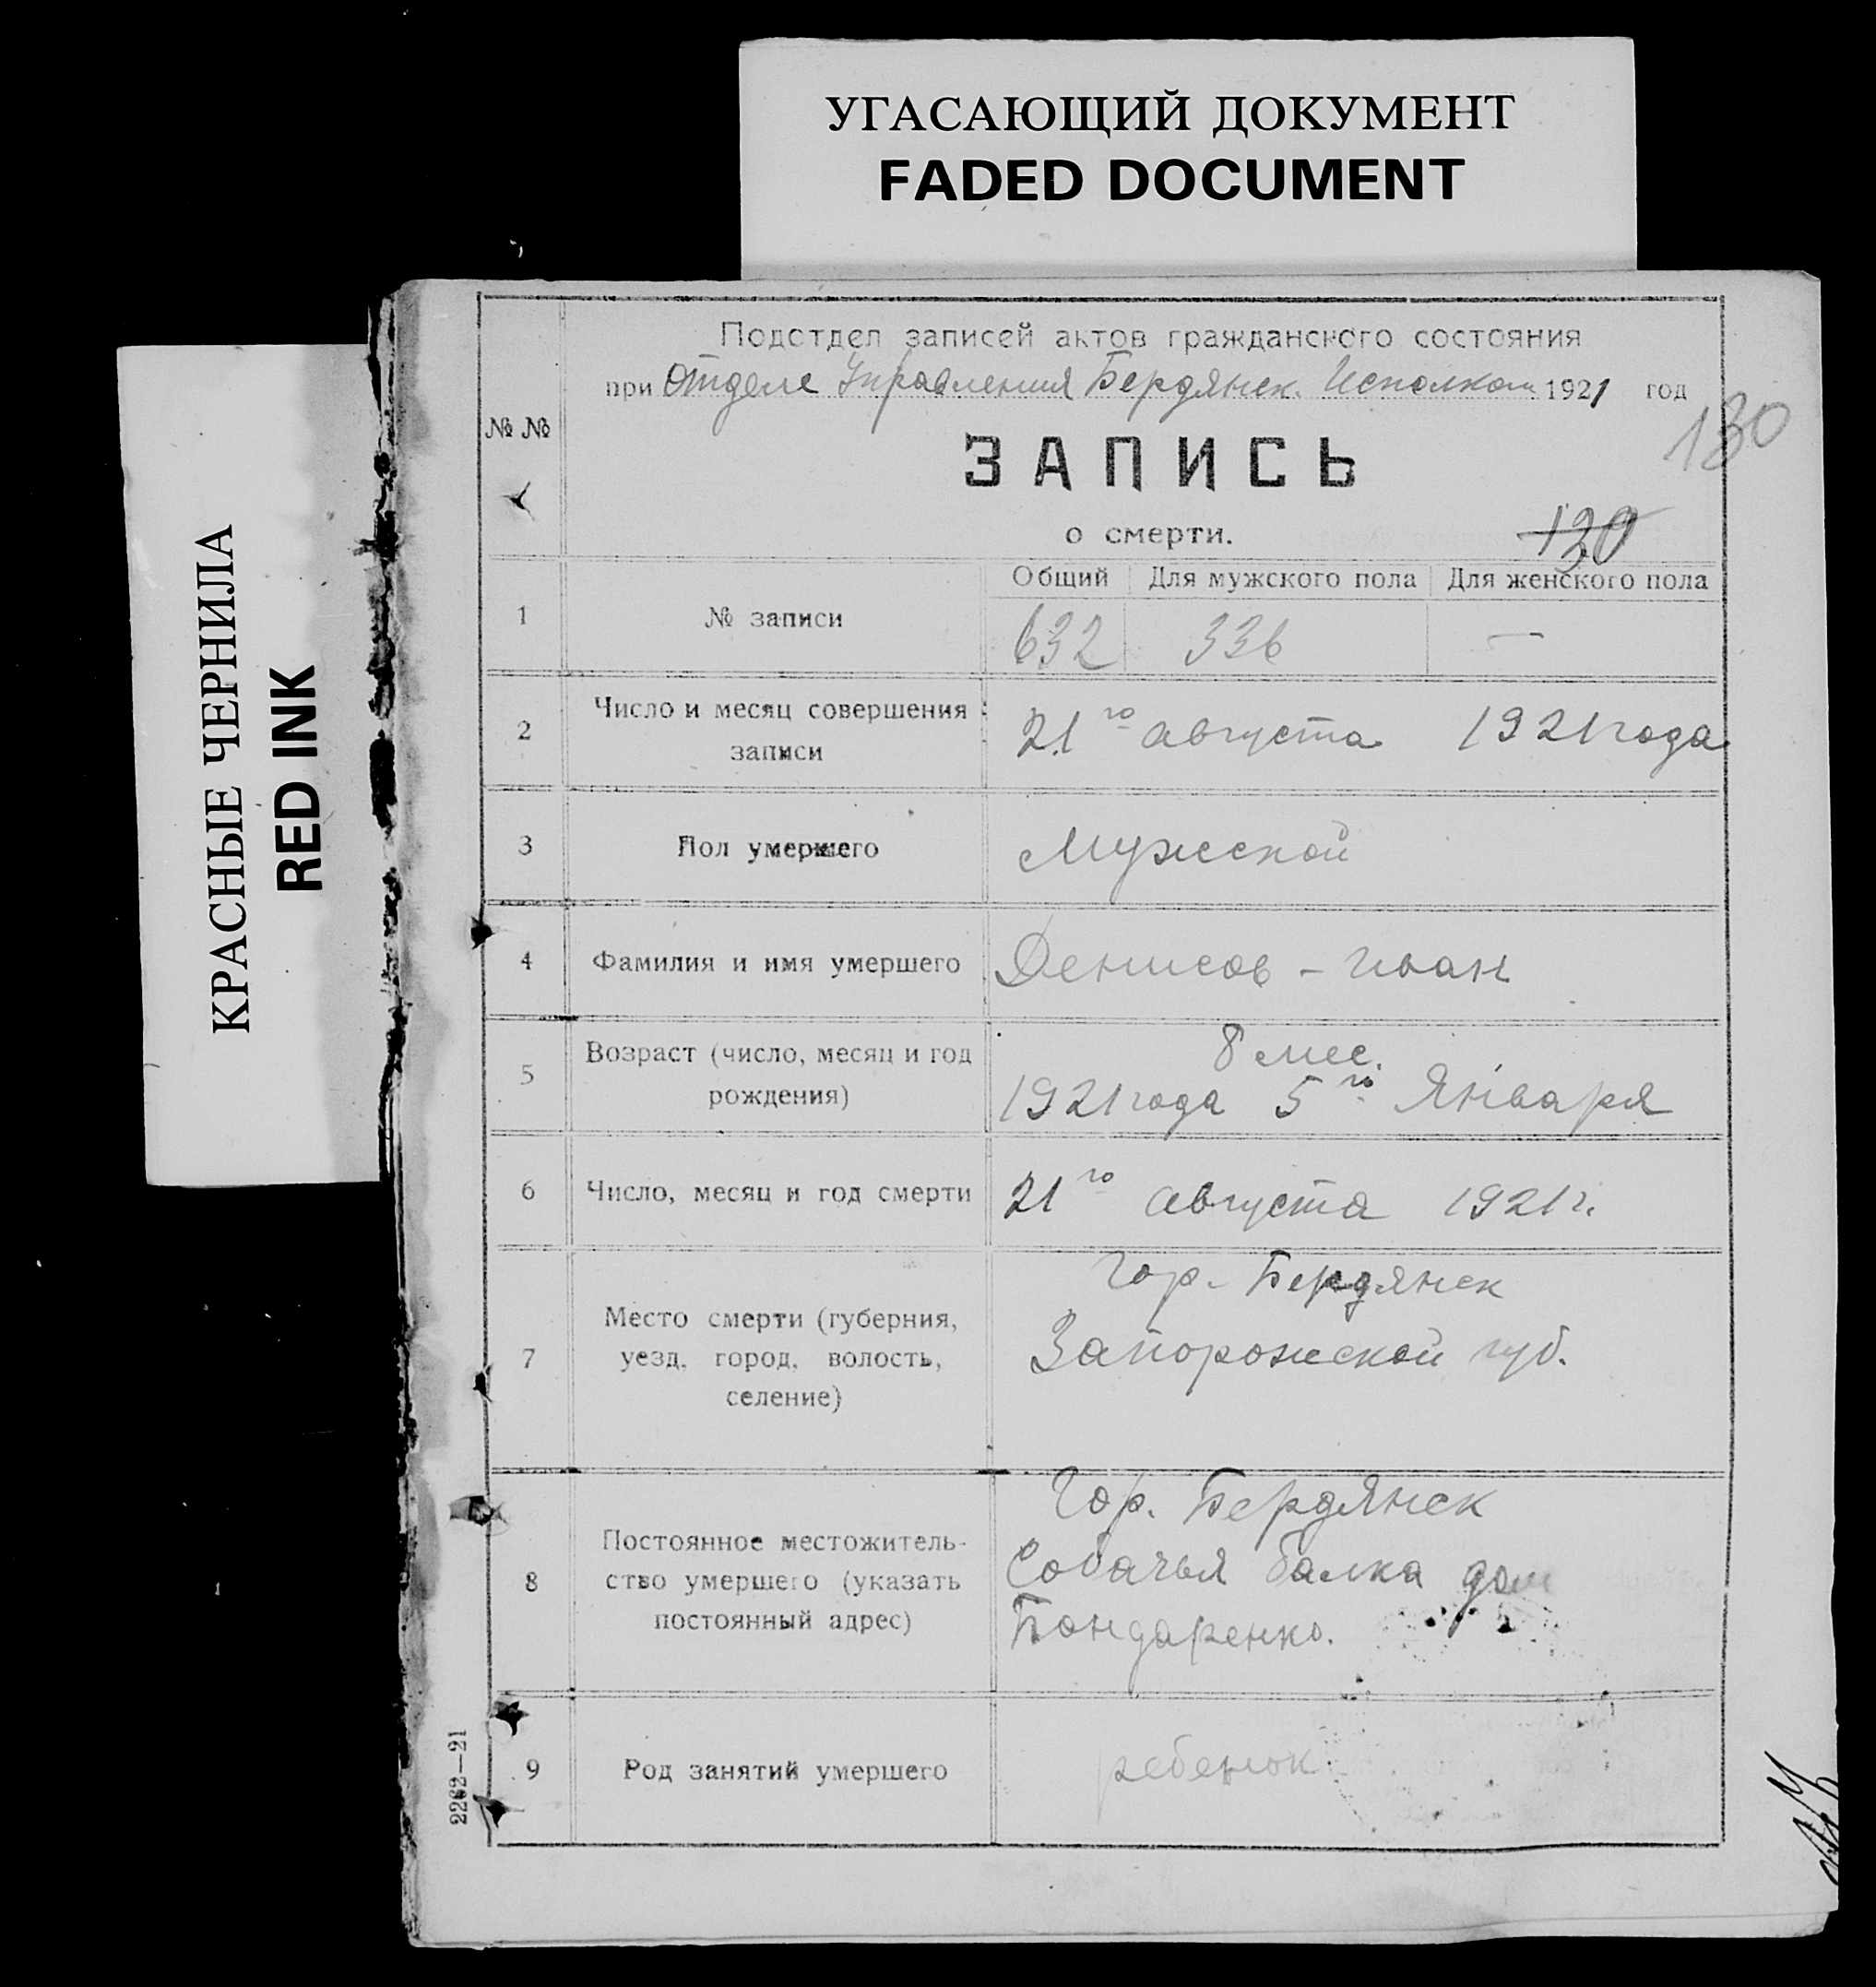 УГАСАЮЩИЙ ДОКУМЕНТ
FADED DOCUMENT
КРАСНЫЕ ЧЕРНИЛА
RED INK
Подотдел записей актов гражданского состояния
при Отделе Управления Бердянск. Исполком 1921 год
130
№ №
ЗАПИСЬ
о смерти.
130
Общий Для мужского пола Для женского пола
1 № записи 632 336 —
2 Число и месяц совершения
записи
21го августа 1921 года
3 Пол умершего Мужской
4 Фамилия и имя умершего Денисов - Иван
5 Возраст (число, месяц и год
рождения)
8 мес.
1921 года 5го Января
6 Число, месяц и год смерти 21го августа 1921 г.
7 Место смерти (губерния,
уезд, город, волость,
селение)
Гор. Бердянск
Запорожской губ.
8 Постоянное местожитель-
ство умершего (указать
постоянный адрес)
Гор. Бердянск
Собачья балка дом
Бондаренко.
9 Род занятий умершего ребенок
2262—21